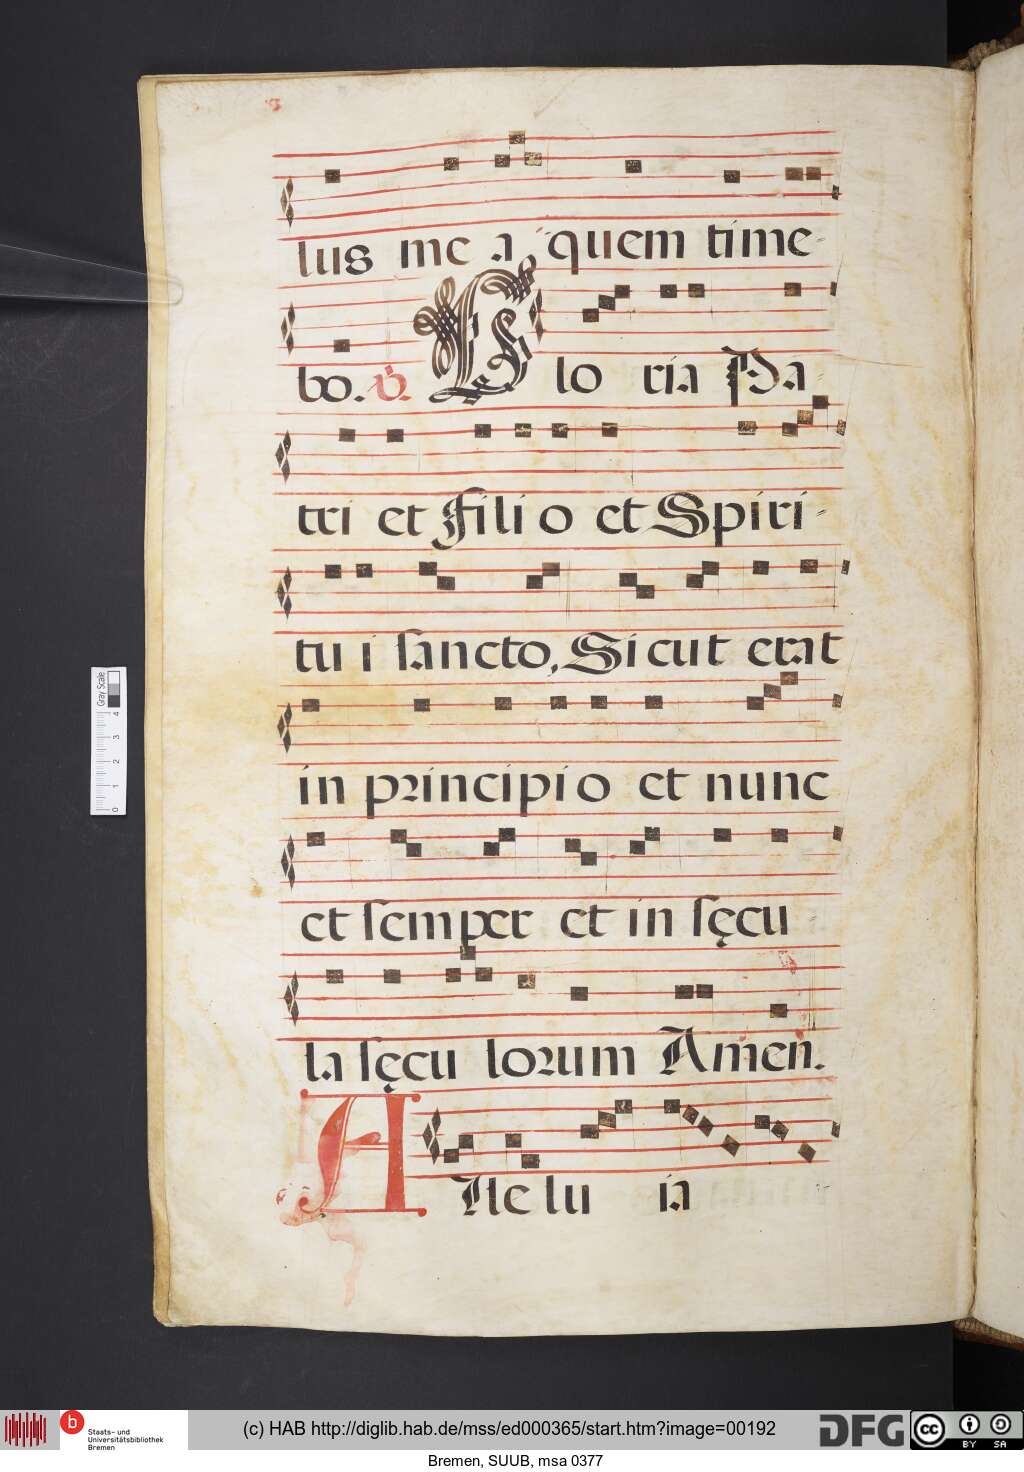 lus me a quem time
bo. V. Glo ria Pa
tri et Filio et Spiri
tu i sancto, Sicut erat
in principio et nunc
et semper et in sęcu
la sęcu lorum Amen.
Alle lu ia
Gray Scale
0 1 2 3 4
b
Staats- und
Universitätsbibliothek
Bremen
(c) HAB http://diglib.hab.de/mss/ed000365/start.htm?image=00192
DFG
cc BY SA
Bremen, SUUB, msa 0377